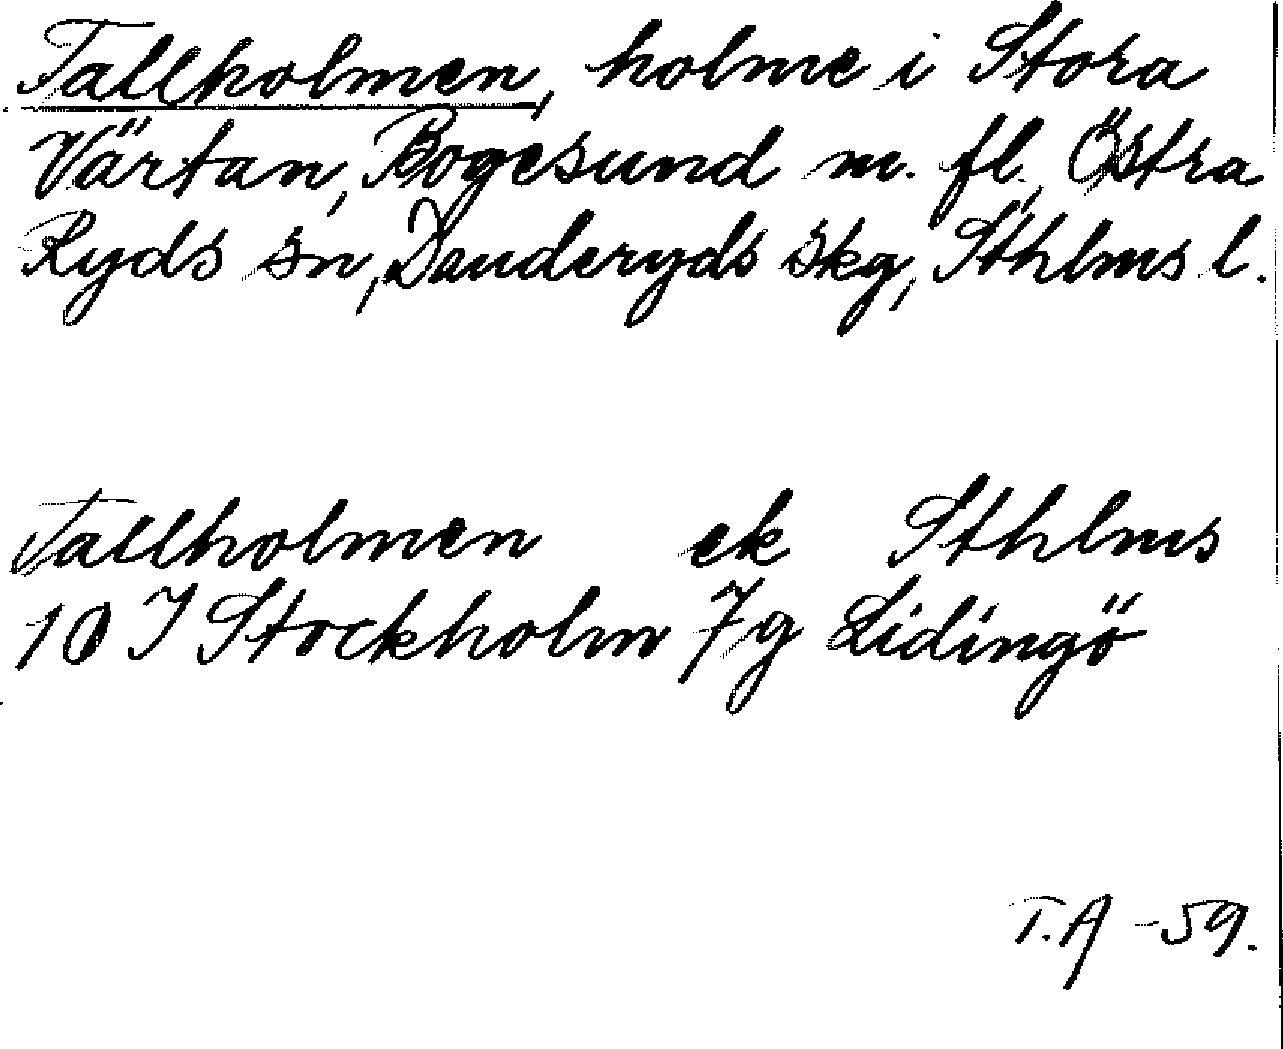 Tallholmen, holme i Stora
Värtan, Bogesund m. fl., Östra
Ryds sn, Danderyds skg, Sthlms l.
Tallholmen ek Sthlms
10 I Stockholm 7g Lidingö
T.A -59.